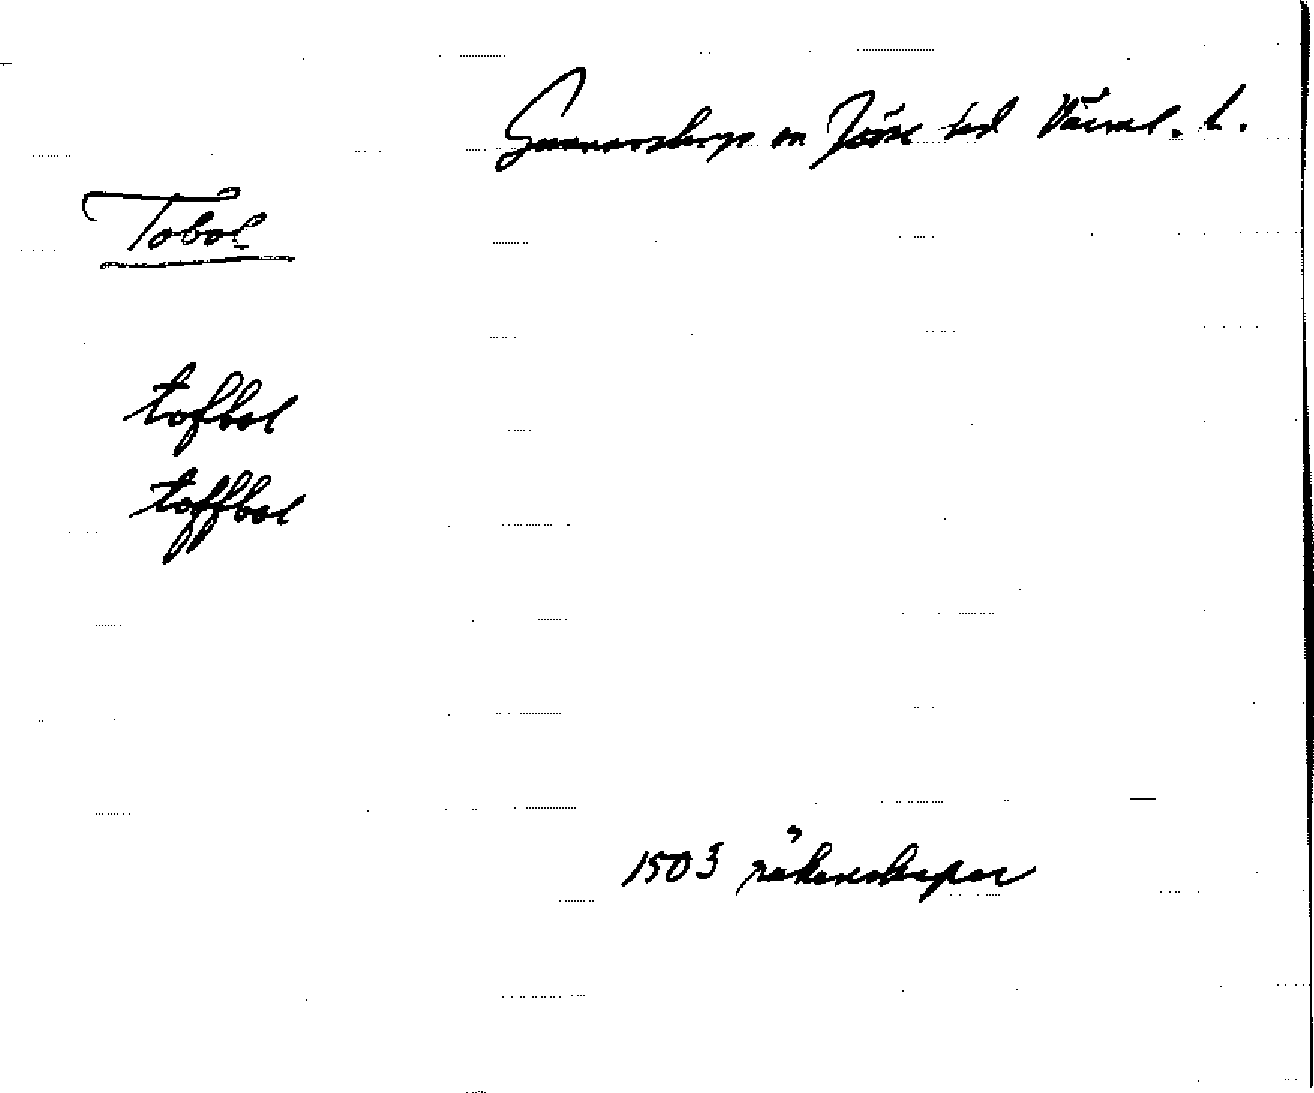 Gunnarskogs sn Jösse hd Värml. l.
Tobol
tofbol
toffbol
1503 räkenskaper